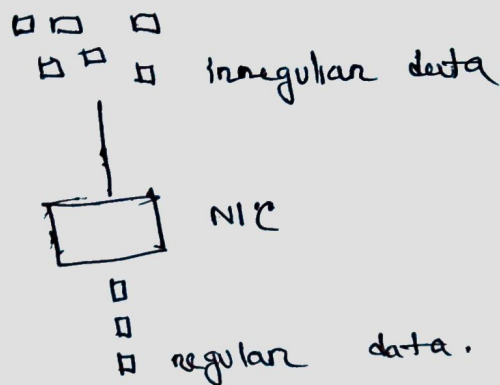 irregular data
NIC
regular data.